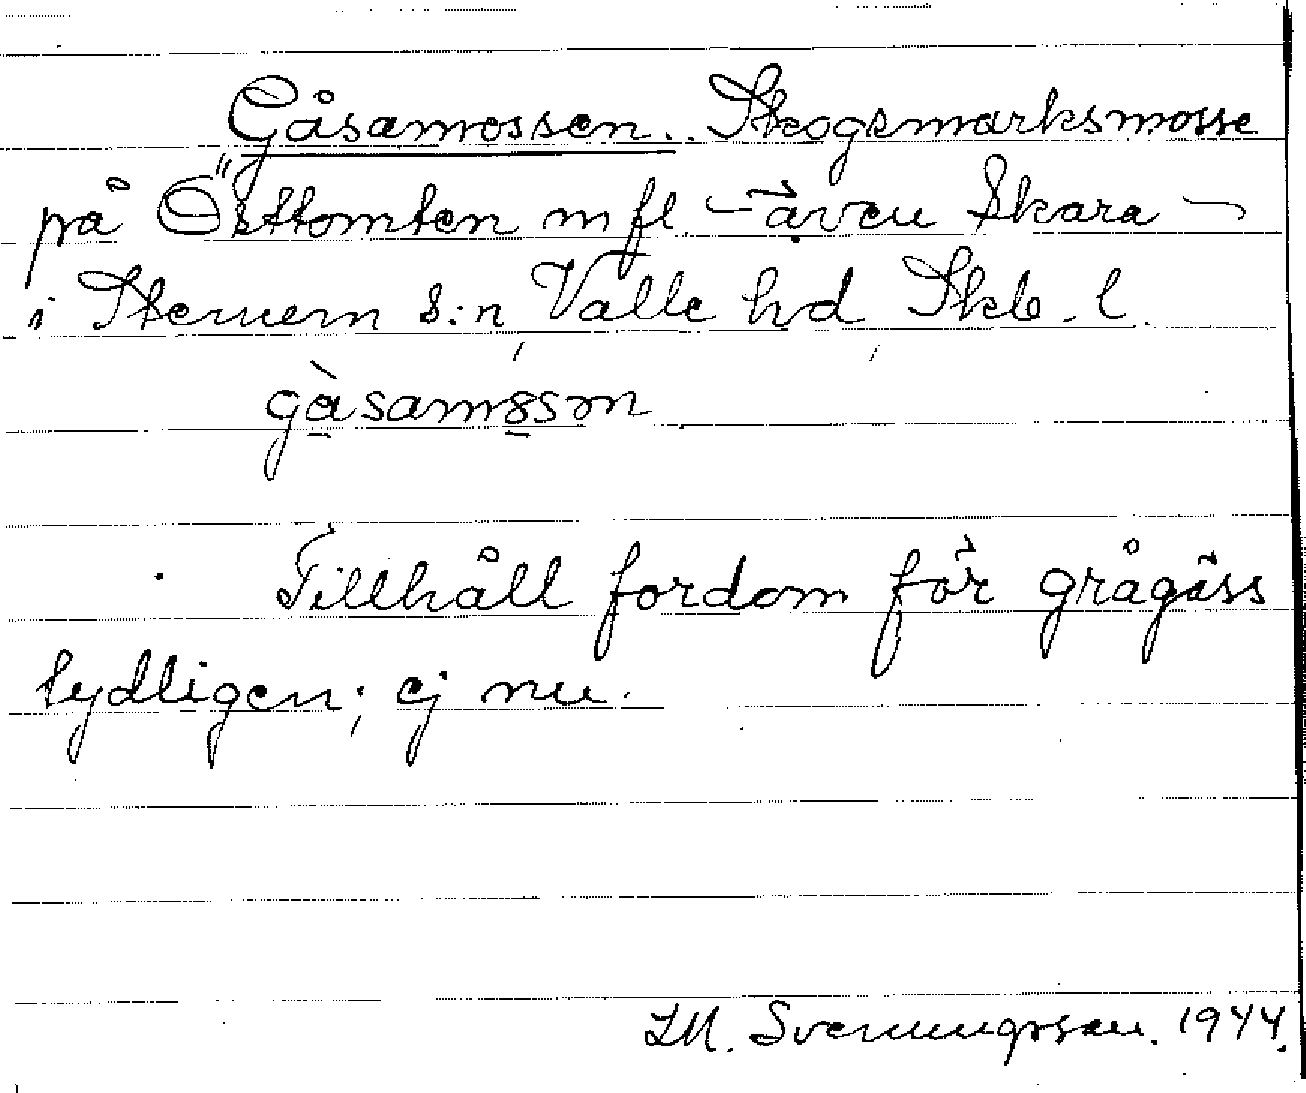 Gåsamossen. Skogsmarksmosse
på Östtomten m fl – även Skara –
i Stenum s:n, Valle hd, Skb. l.
gàsamssn
Tillhåll fordom för grågäss
tydligen; ej nu.
L.M. Svenungsson. 1944.